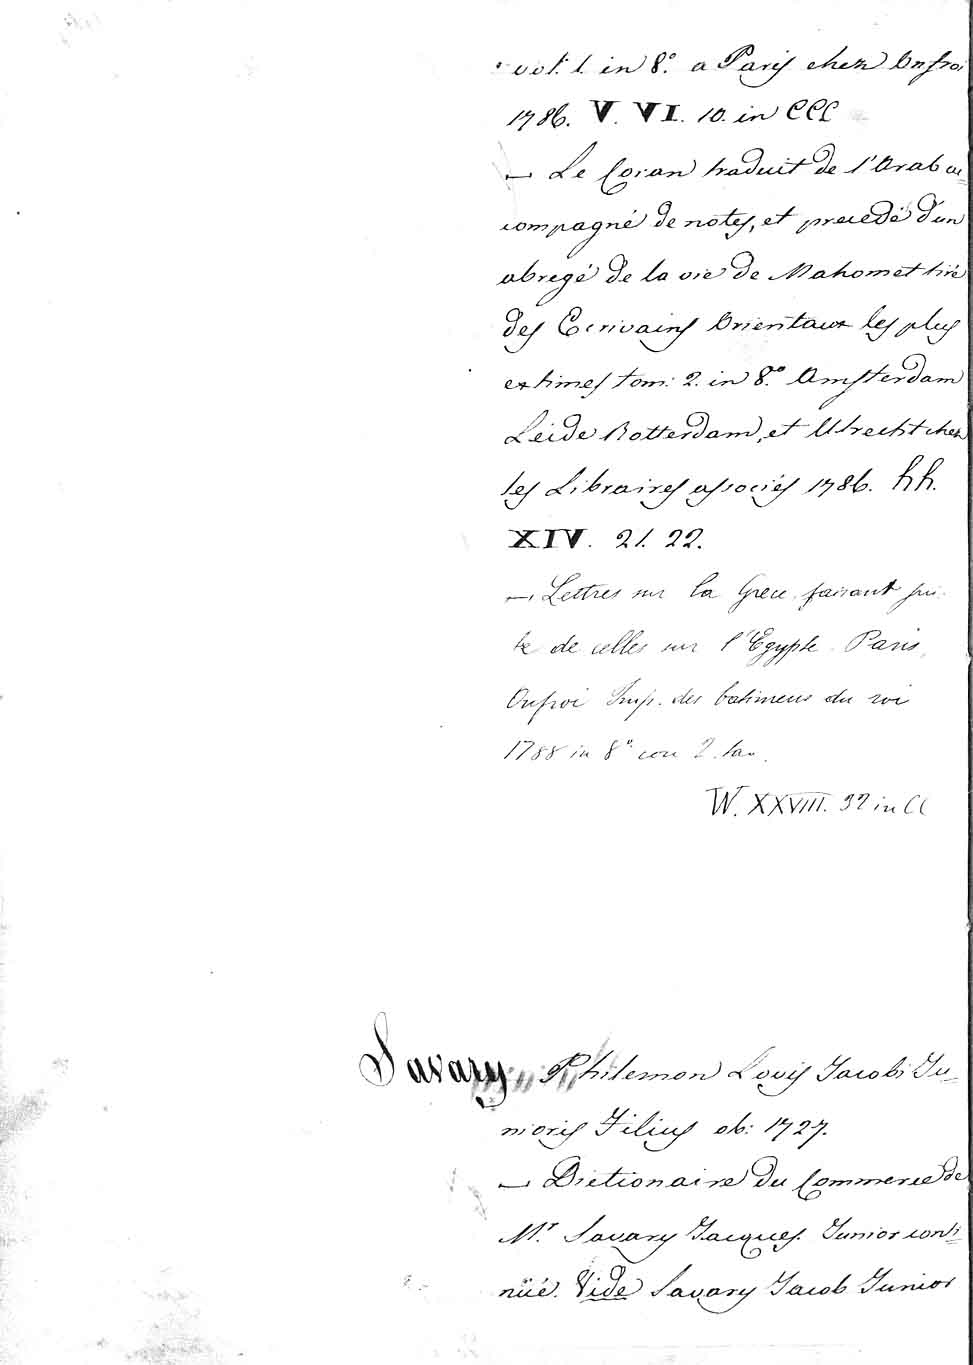 vol: 1. in 8.° a Paris chez Onfroi
1786. V. VI. 10. in CCC
— Le Coran traduit de l'Arab ac=
compagné de notes, et precedé d'un
abregé de la vie de Mahomet tiré
des Ecrivains Orientaux les plus
estimes tom: 2. in 8.° Amsterdam
Leide Rotterdam, et Utrecht chez
les Libraires associés 1786. hh.
XIV. 21. 22.
— Lettres sur la Grece, faisant sui-
te de celles sur l'Egypte. Paris,
Onfroi Imp. des batimens du roi
1788 in 8° con 2. tav.
W. XXVIII. 32 in CC
Savary Philemon Louis Jacobi Ju=
nioris Filius ob: 1727.
— Dictionaire du Commerce de
Mr. Savary Jacques Junior conti=
nüé. Vide Savary Jacob Junior